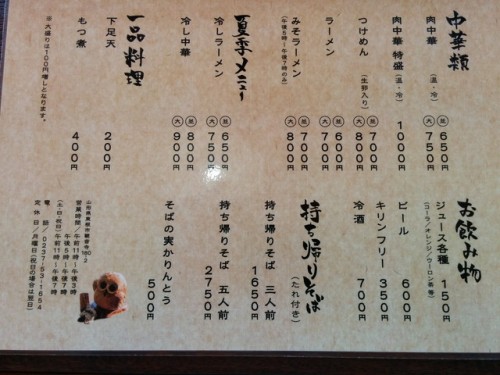 中華類
肉中華 (温・冷) 並 650円
大 750円
肉中華 特盛 (温・冷) 1000円
つけめん (生卵入り) 並 700円
大 800円
ラーメン 並 600円
大 700円
みそラーメン 並 700円
(午後5時〜午後7時のみ) 大 800円
夏季メニュー
冷しラーメン 並 650円
大 750円
冷し中華 並 800円
大 900円
一品料理
下足天 200円
もつ煮 400円
※大盛りは100円増しとなります。
お飲み物
ジュース各種 150円
(コーラ/オレンジ/ウーロン茶 等)
ビール 600円
キリンフリー 350円
冷酒 700円
持ち帰りそば (たれ付き)
持ち帰りそば 三人前 1650円
持ち帰りそば 五人前 2750円
そばの実かりんとう 500円
営業時間/午前11時〜午後3時
午後5時〜午後7時
(土・日・祝日) 午前11時〜午後7時
電話/0237-53-1654
定休日/月曜日(祝日の場合は翌日)